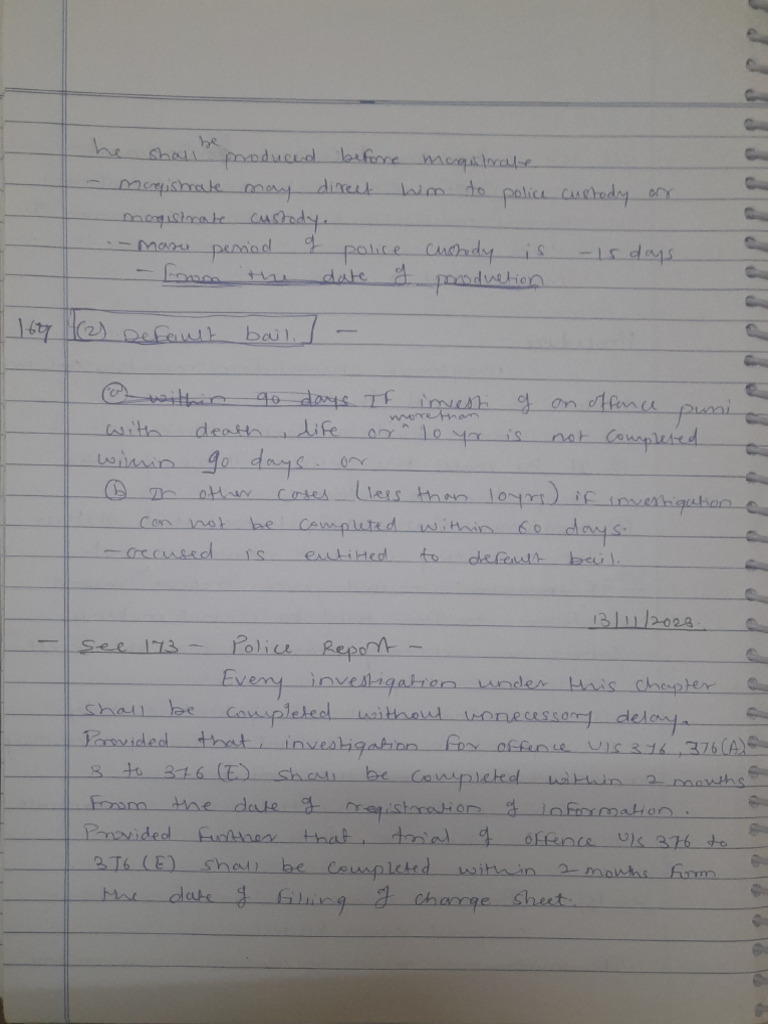 he shall be produced before magistrate
- magistrate may direct him to police custody or
magistrate custody.
- Maxi period of police custody is - 15 days
- From the date of production
167 (2) Default bail. -
(a) within 90 days If investi of an offence puni
with death, life or more than 10 yr is not completed
within 90 days. or
(b) In other cases (less than 10yrs) if investigation
can not be completed within 60 days.
- accused is entitled to default bail.
13/11/2023.
- Sec 173 - Police Report -
Every investigation under this chapter
shall be completed without unnecessary delay.
Provided that, investigation for offence U/S 376, 376(A)
B to 376 (E) shall be completed within 2 months
From the date of registration of information.
Provided further that, trial of offence U/S 376 to
376 (E) shall be completed within 2 months form
the date of filling of charge sheet.